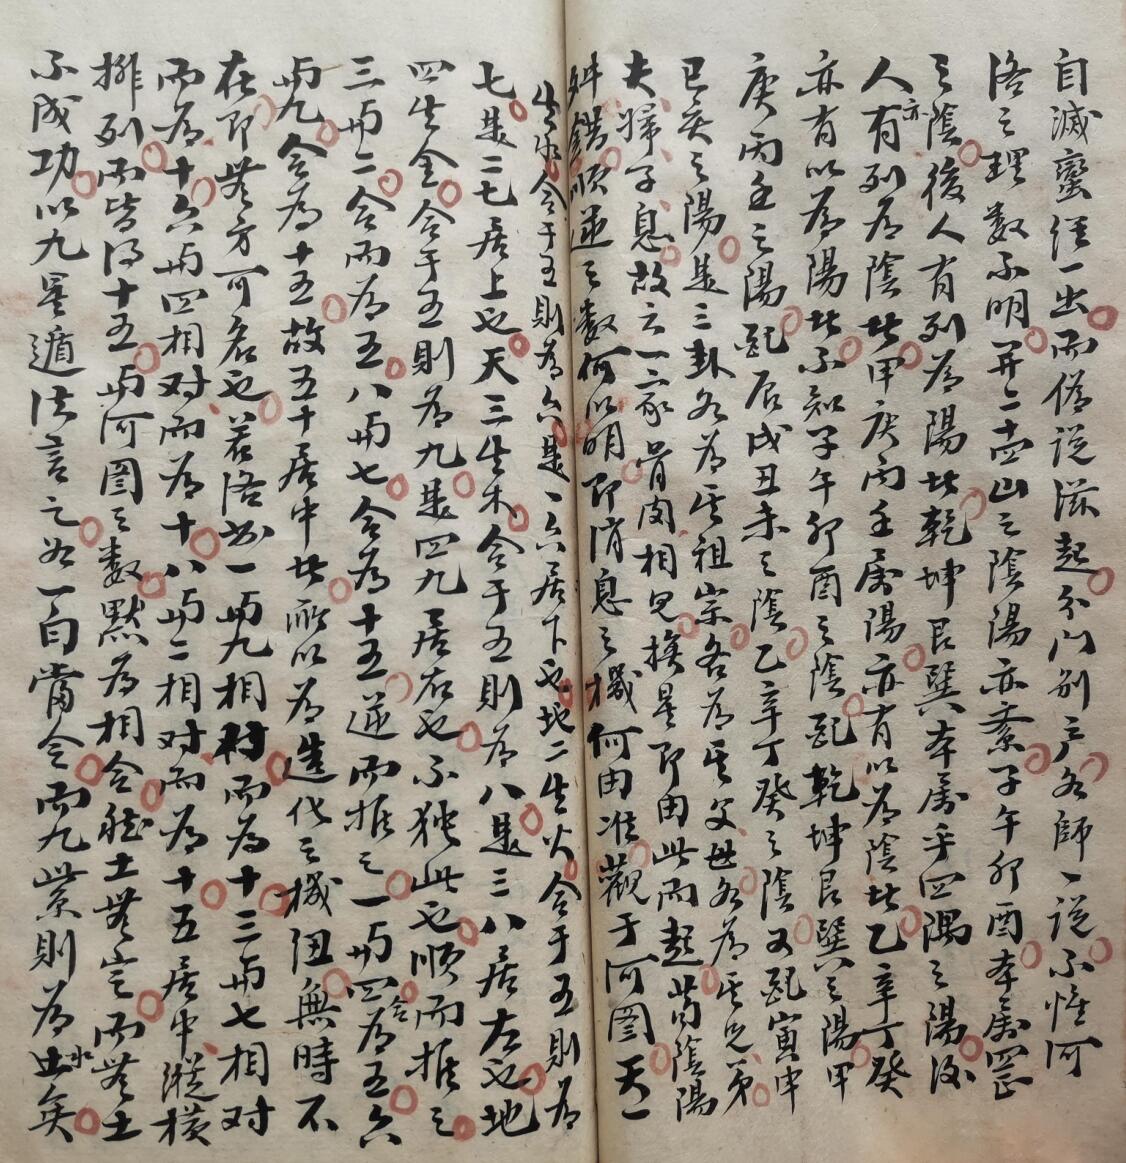 自滅蠻經一出而偽說滋起分門別户各師一說不惟河
洛之理數不明并二十四山之陰陽亦紊子午卯酉本屬四正
之陰後人有列為陽者乾坤艮巽本屬乎四隅之陽後
人亦有列為陰者甲庚丙壬屬陽亦有以為陰者乙辛丁癸
亦有以為陽者不知子午卯酉之陰配乾坤艮巽之陽甲
庚丙壬之陽配辰戌丑未之陰乙辛丁癸之陰又配寅申
巳亥之陽是三卦各為其祖宗各為其父母各為其兄弟
夫婦子息故云一家骨肉相見換星即由此而起苟陰陽
舛錯順逆之數何以明即消息之機何由准觀于河圖天一
生水合于五則為六是一六居下也地二生火合于五則為
七是二七居上也天三生木合于五則為八是三八居左也地
四生金合于五則為九是四九居右也不独此也順而推之
三與二合而為五八與七合為十五逆而推之一與四合為五六
與九合為十五故五十居中者所以為造化之機扭無時不
在即無方可名也若洛書一與九相对而為十三與七相对
而為十六與四相对而為十八與二相对而為十五居中縱橫
排列而皆得十五與河圖之數默為相合然土無定而無土
不成功以九星遁法言之如一白當令而九紫則為水矣